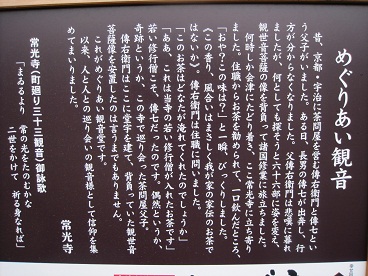 めぐりあい観音
昔、京都・宇治に茶問屋を営む傳右衛門と傳七とい
う父子がいました。ある日、長男の傳七が出奔し、行
方が分からなくなりました。父傳右衛門は悲嘆に暮れ
ましたが、何としても探そうと六十六部に姿を変え、
観世音菩薩の像を背負って諸国修業に旅立ちました。
何時しか会津にたどり着き、ここ常光寺に立ち寄り
ました。住職からお茶を勧められて、一口飲んだところ、
「おや？この味は？」と一瞬、びっくりしました。
（この香り、風合いはまさしく我が家の家伝のお茶で
はないか）。傳右衛門は住職に問いました。
「このお茶はどなたが淹れてくれたんでしょうか」
「ああ、これは当寺の若い修行僧が入れたお茶です」
若い修行僧こそ、傳七だったのです。偶然というか、
奇跡というか、この寺で巡り合った茶問屋父子。
傳右衛門はここに堂宇を建て、背負っていた観世音
菩薩像を安置したのは言うまでもありません。
これがめぐりあい観音堂です。
以来、人と人との巡り会いの観音様として信仰を集
めてまいりました。
常光寺
常光寺（町廻り三十三観音）御詠歌
「まるるより　常の光をたのむかな
二世をかけて　祈る身なれば」